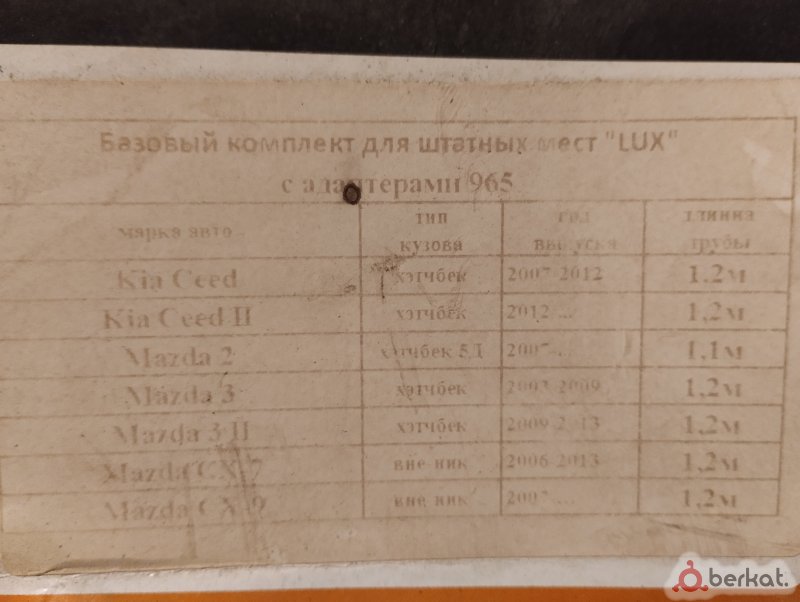 Базовый комплект для штатных мест "LUX"
с адаптерами 965
марка авто тип кузова год выпуска длинна трубы
Kia Ceed хэтчбек 2007-2012 1.2м
Kia Ceed II хэтчбек 2012-... 1,2м
Mazda 2 хэтчбек 5Д 2007-... 1,1м
Mazda 3 хэтчбек 2003-2009 1,2м
Mazda 3 II хэтчбек 2009-2013 1,2м
Mazda CX-7 вне-ник 2006-2013 1,2м
Mazda CX-9 вне-ник 2007-... 1,2м
berkat.